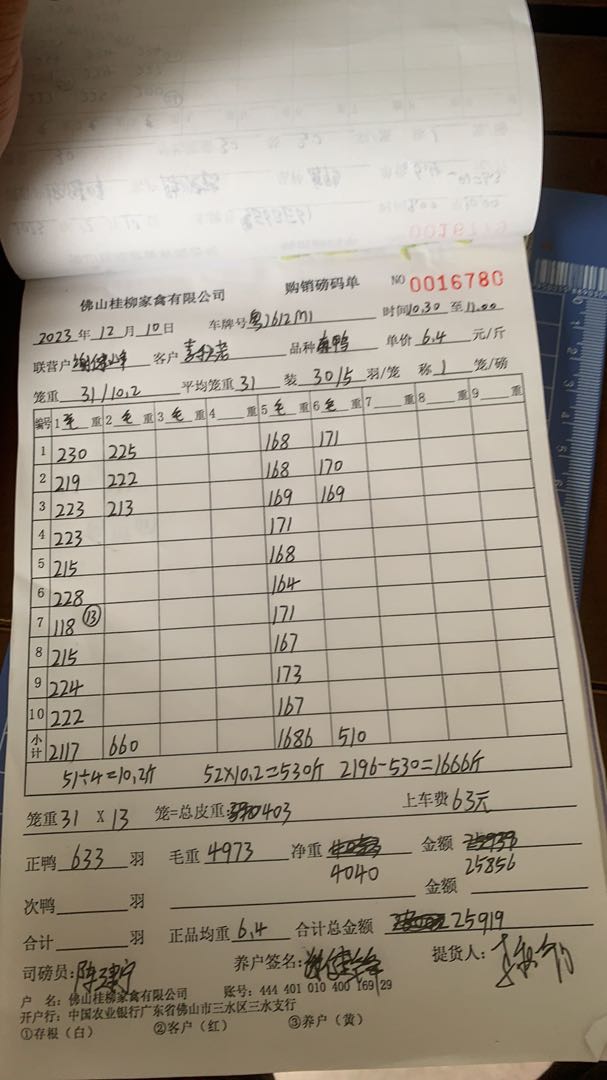 佛山桂柳家禽有限公司 购销磅码单 NO 0016780
2023年12月10日 车牌号粤J612M1 时间10.30至11.00
联营户 客户 品种 鸭 单价6.4元/斤
笼重31/10.2 平均笼重31 装30/5羽/笼 称1笼/磅
编号 1毛重 2毛重 3毛重 4重 5毛重 6毛重 7重 8重 9重
1 230 225 168 171
2 219 222 168 170
3 223 213 169 169
4 223 171
5 215 168
6 228 164
7 118 ⑬ 171
8 215 167
9 224 173
10 222 167
小计 2117 660 1686 510
51÷4=10.2斤 52×10.2=530斤 2196-530=1666斤
笼重31×13笼=总皮重:403 上车费63元
正鸭633羽 毛重4973 净重4040 金额25856
次鸭 羽 金额
合计 羽 正品均重6.4 合计总金额25919
司磅员: 养户签名: 提货人:
户 名:佛山桂柳家禽有限公司 账号:444 401 010 400 169 29
开户行:中国农业银行广东省佛山市三水区三水支行
①存根(白) ②客户(红) ③养户(黄)